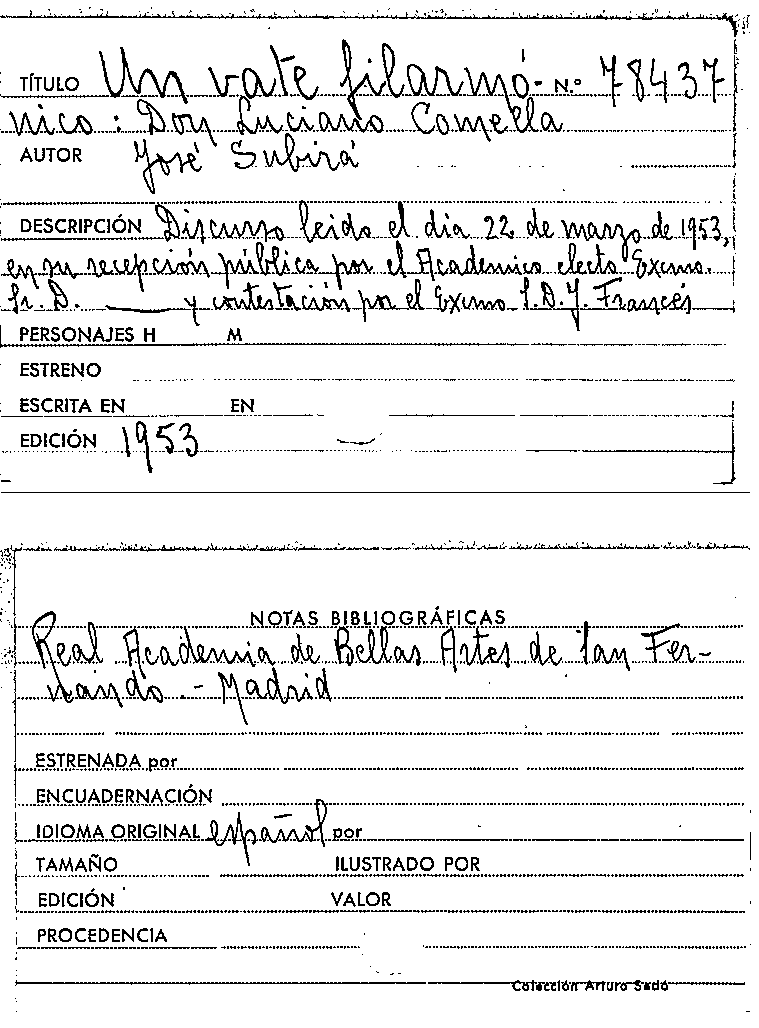 TÍTULO Un vate filarmó- N.º 78437
nico : Don Luciano Comella
AUTOR José Subirá
DESCRIPCIÓN Discurso leido el dia 22 de marzo de 1953,
en su recepción pública por el Academico electo Excmo.
Sr. D. ——— y contestación por el Excmo S. D. J. Francés
PERSONAJES H M
ESTRENO
ESCRITA EN EN
EDICIÓN 1953
NOTAS BIBLIOGRÁFICAS
Real Academia de Bellas Artes de San Fer-
nando.- Madrid
ESTRENADA por
ENCUADERNACIÓN
IDIOMA ORIGINAL español por
TAMAÑO ILUSTRADO POR
EDICIÓN VALOR
PROCEDENCIA
Colección Arturo Sedó